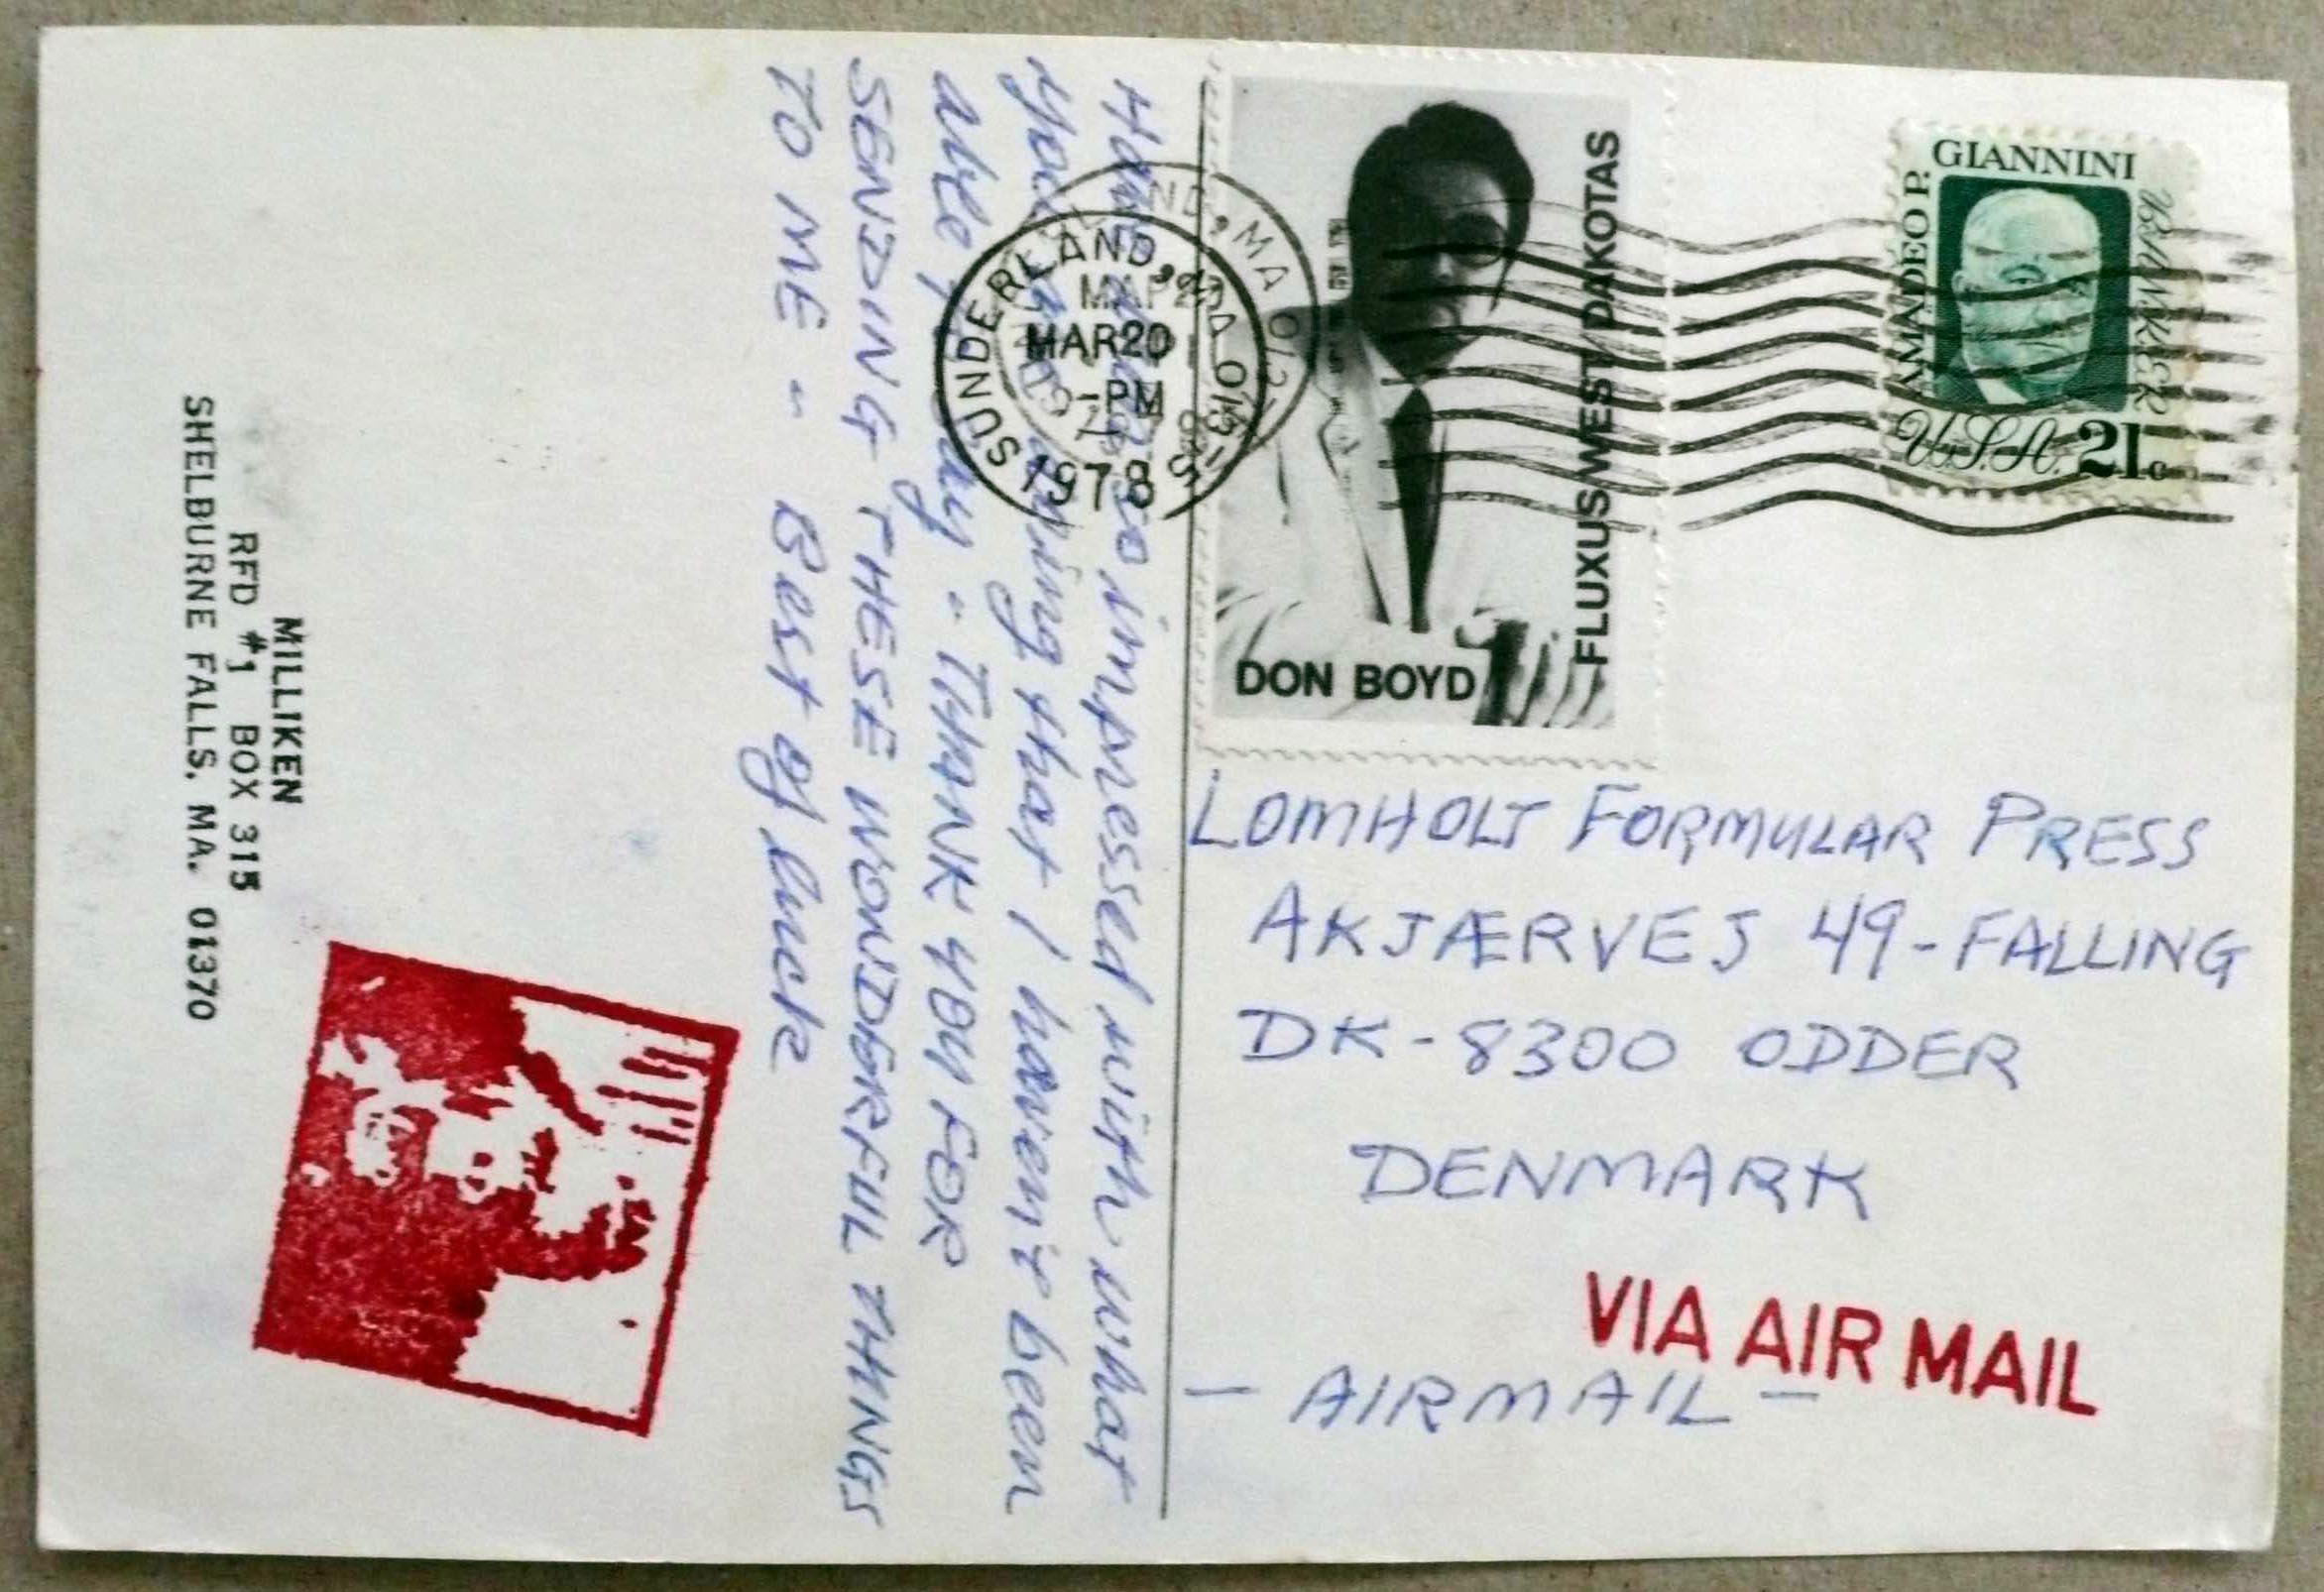 Have been so impressed with what
you are doing that I haven't been
able " THANK YOU FOR
SENDING THESE WONDERFUL THINGS
TO ME " Best of luck
MILLIKEN
RFD #1 BOX 315
SHELBURNE FALLS, MA. 01370
SUNDERLAND, MA 013
MAR 20
PM
1978
DON BOYD
FLUXUS WEST/DAKOTAS
AMADEO P.
GIANNINI
BANKER
U.S.A. 21c
LOMHOLT FORMULAR PRESS
AKJÆRVEJ 49 - FALLING
DK - 8300 ODDER
DENMARK
VIA AIR MAIL
- AIRMAIL -